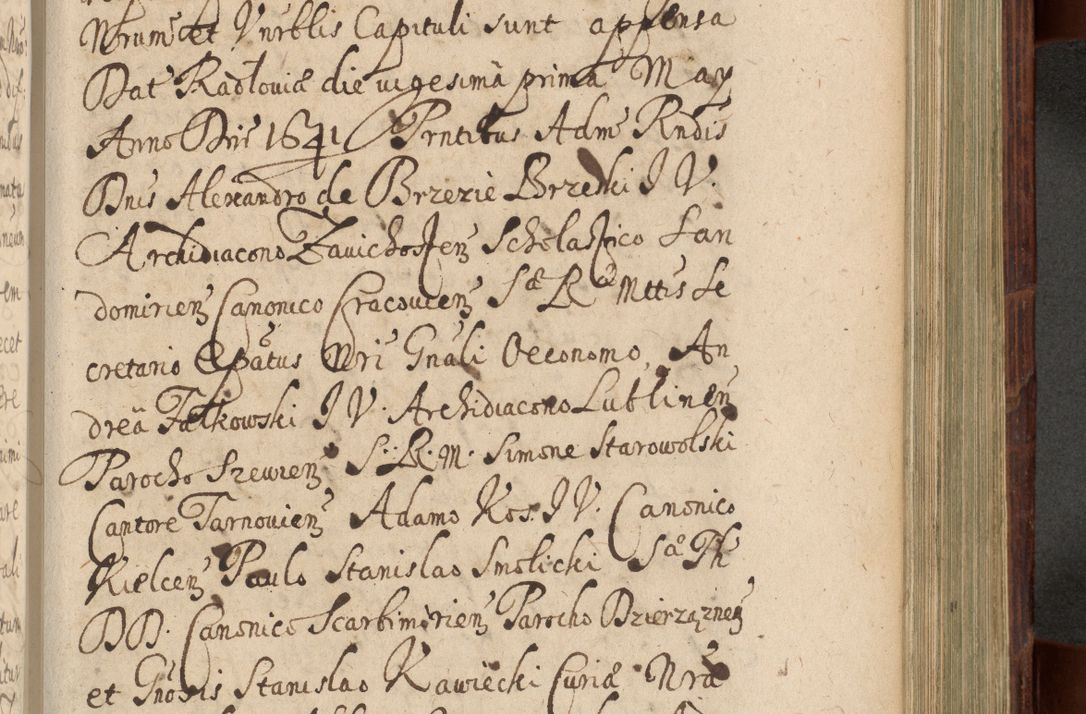 Nrum et Vnrblis Capituli sunt appensa
Dat Radłoviæ die vigesima prima May
Anno Dni 1641 Prntibus Adm Rndis
Dnis Alexandro de Brzezie Brzeski I V.
Archidiacono Zavichosten Scholastico San
domirien Canonico Cracovien Sæ Ræ Mttis Se
cretario Epatus Nri Gnali Oeconomo, An
drea Fałkowski I V. Archidiacono Lublinen
Parocho Szewien S. R. M. Simone Starowolski
Cantore Tarnovien Adamo Kos. I V. Canonico
Kielcen Paulo Stanislao Smolicki Sæ Th
DD. Canonico Scarbimirien Parocho Dzierzązneń
et Gnosis Stanislao Rawiecki Curiæ Nræ